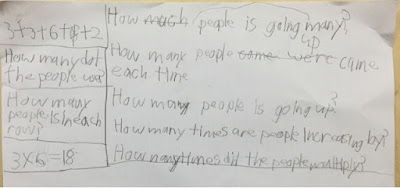 How many dot
the people
How many
people is in each
row?
3x6=18
How much people is going many?
up
How many people some were came
each time
How many people is going up?
How many times are people increasing by?
How many times did the people multiply?